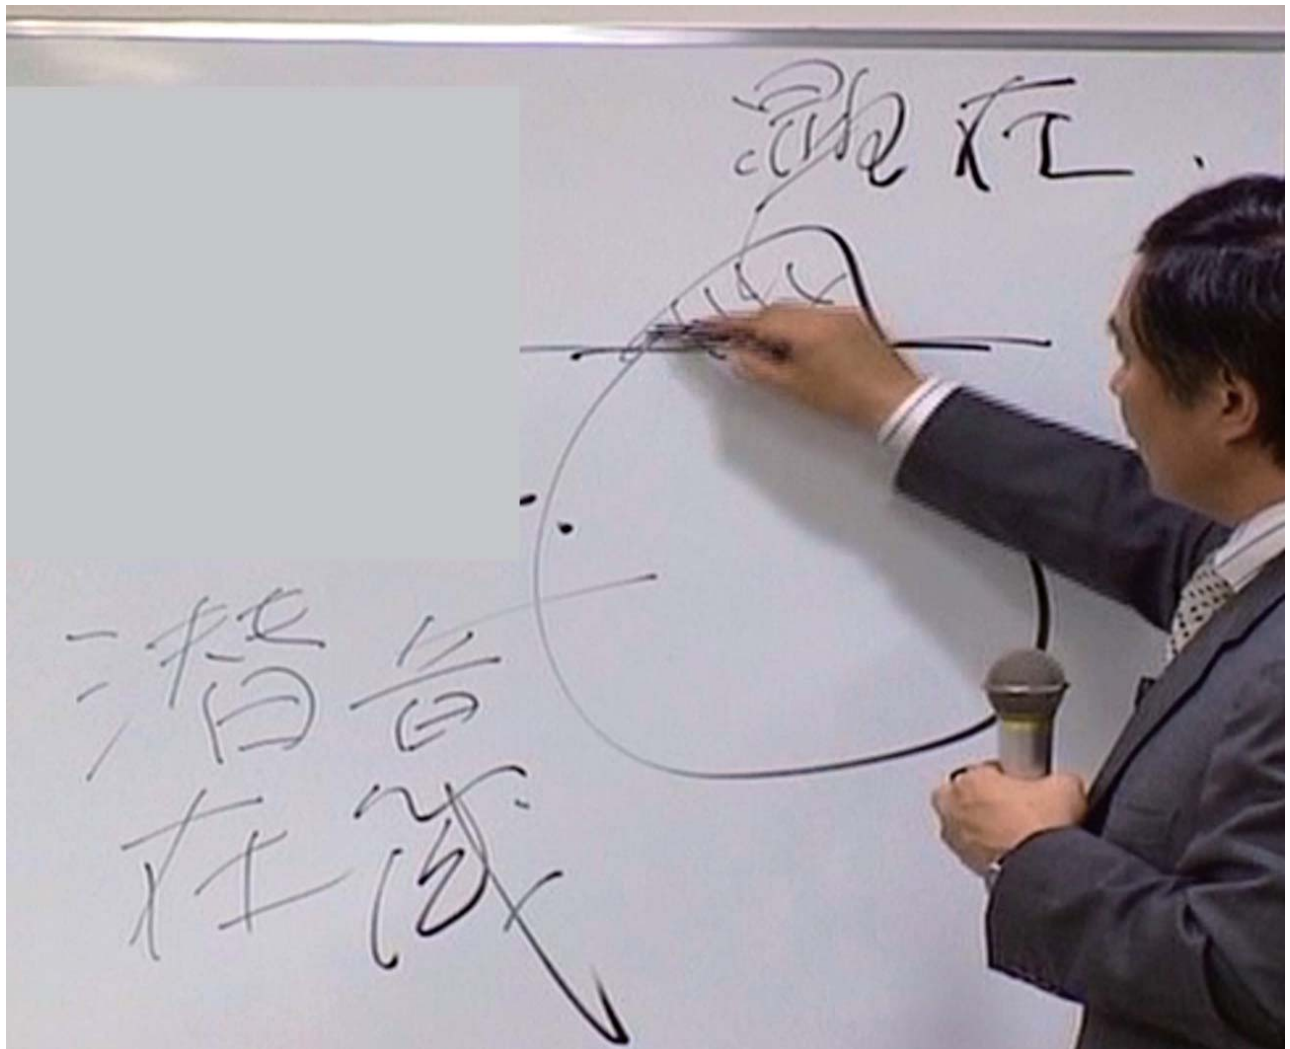 顕在
潜在
意識